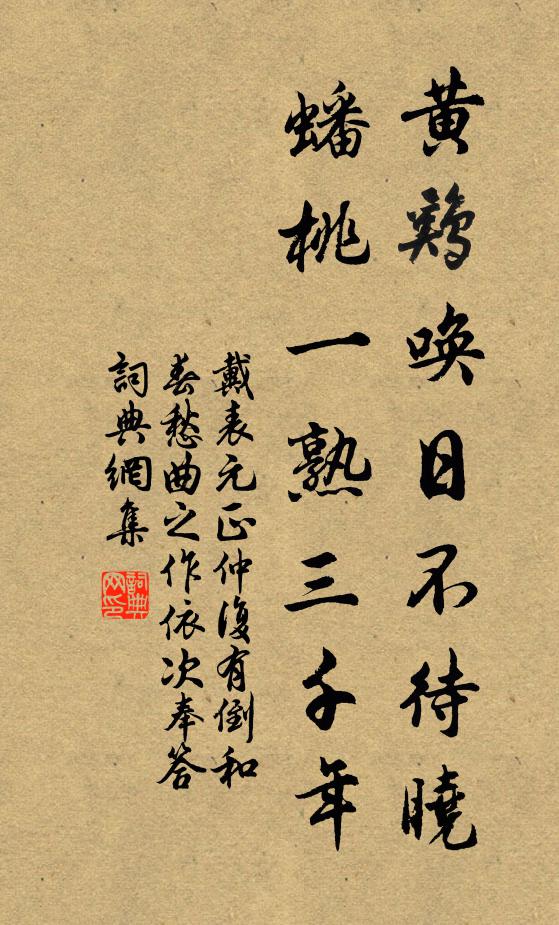 黄鷄喚日不待曉
蟠桃一熟三千年
戴表元正仲復有倒和
春愁曲之作依次奉答
詞典網集
詞典
网印